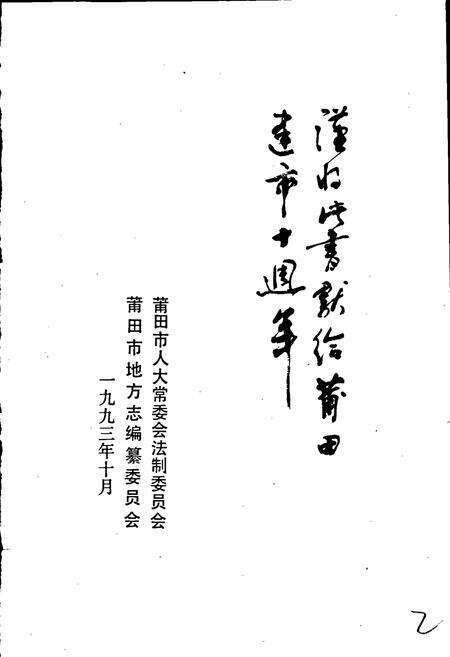 谨将此书献给莆田
建市十週年
莆田市人大常委会法制委员会
莆田市地方志编纂委员会
一九九三年十月
2